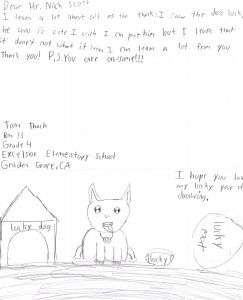 Dear Mr. Nick Scott
I learn a lot about all of the thinks. I saw the dog lucky
he was so cute I wish I can pet him but I learn that
it dosn't out what it mean I can learn a lot from you
Thank you! P.S. You are awsome!!!
Tom Thach
Rm 33
Grade 4
Excelsior Elementary School
Garden Grove, CA
I hope you like
my lucky your dog
drawing.
lucky dog
lucky
lucky